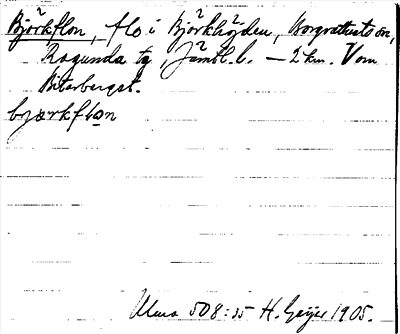 Björkflon, flo i Björkhöjden, Borgvattnets sn,
Ragunda tg, Jämtl. l. — 2 km. V om
Bitarberget.
bjærkflon
Ulma 508:35 H. Geijer 1905.